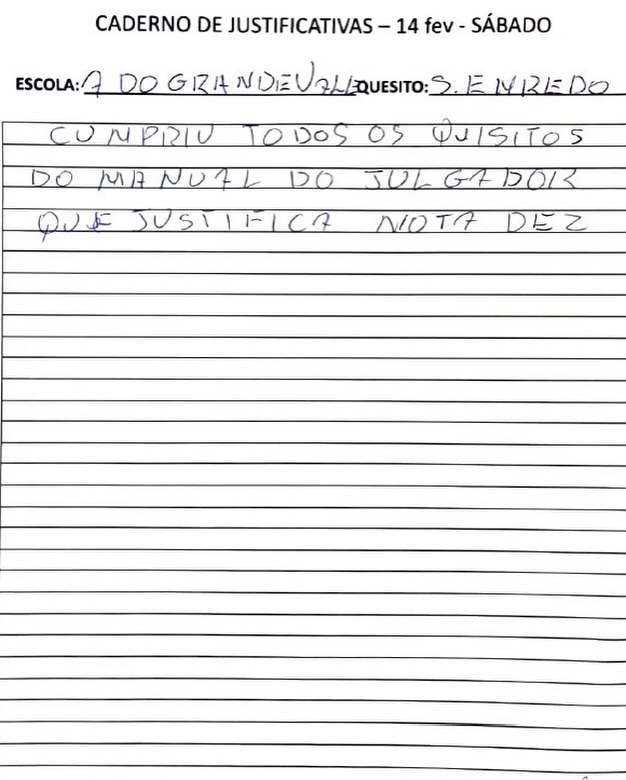 CADERNO DE JUSTIFICATIVAS – 14 fev - SÁBADO
ESCOLA: A DO GRANDE VALE QUESITO: S. ENREDO
CUMPRIU TODOS OS QUISITOS
DO MANUAL DO JULGADOR
QUE JUSTIFICA NOTA DEZ